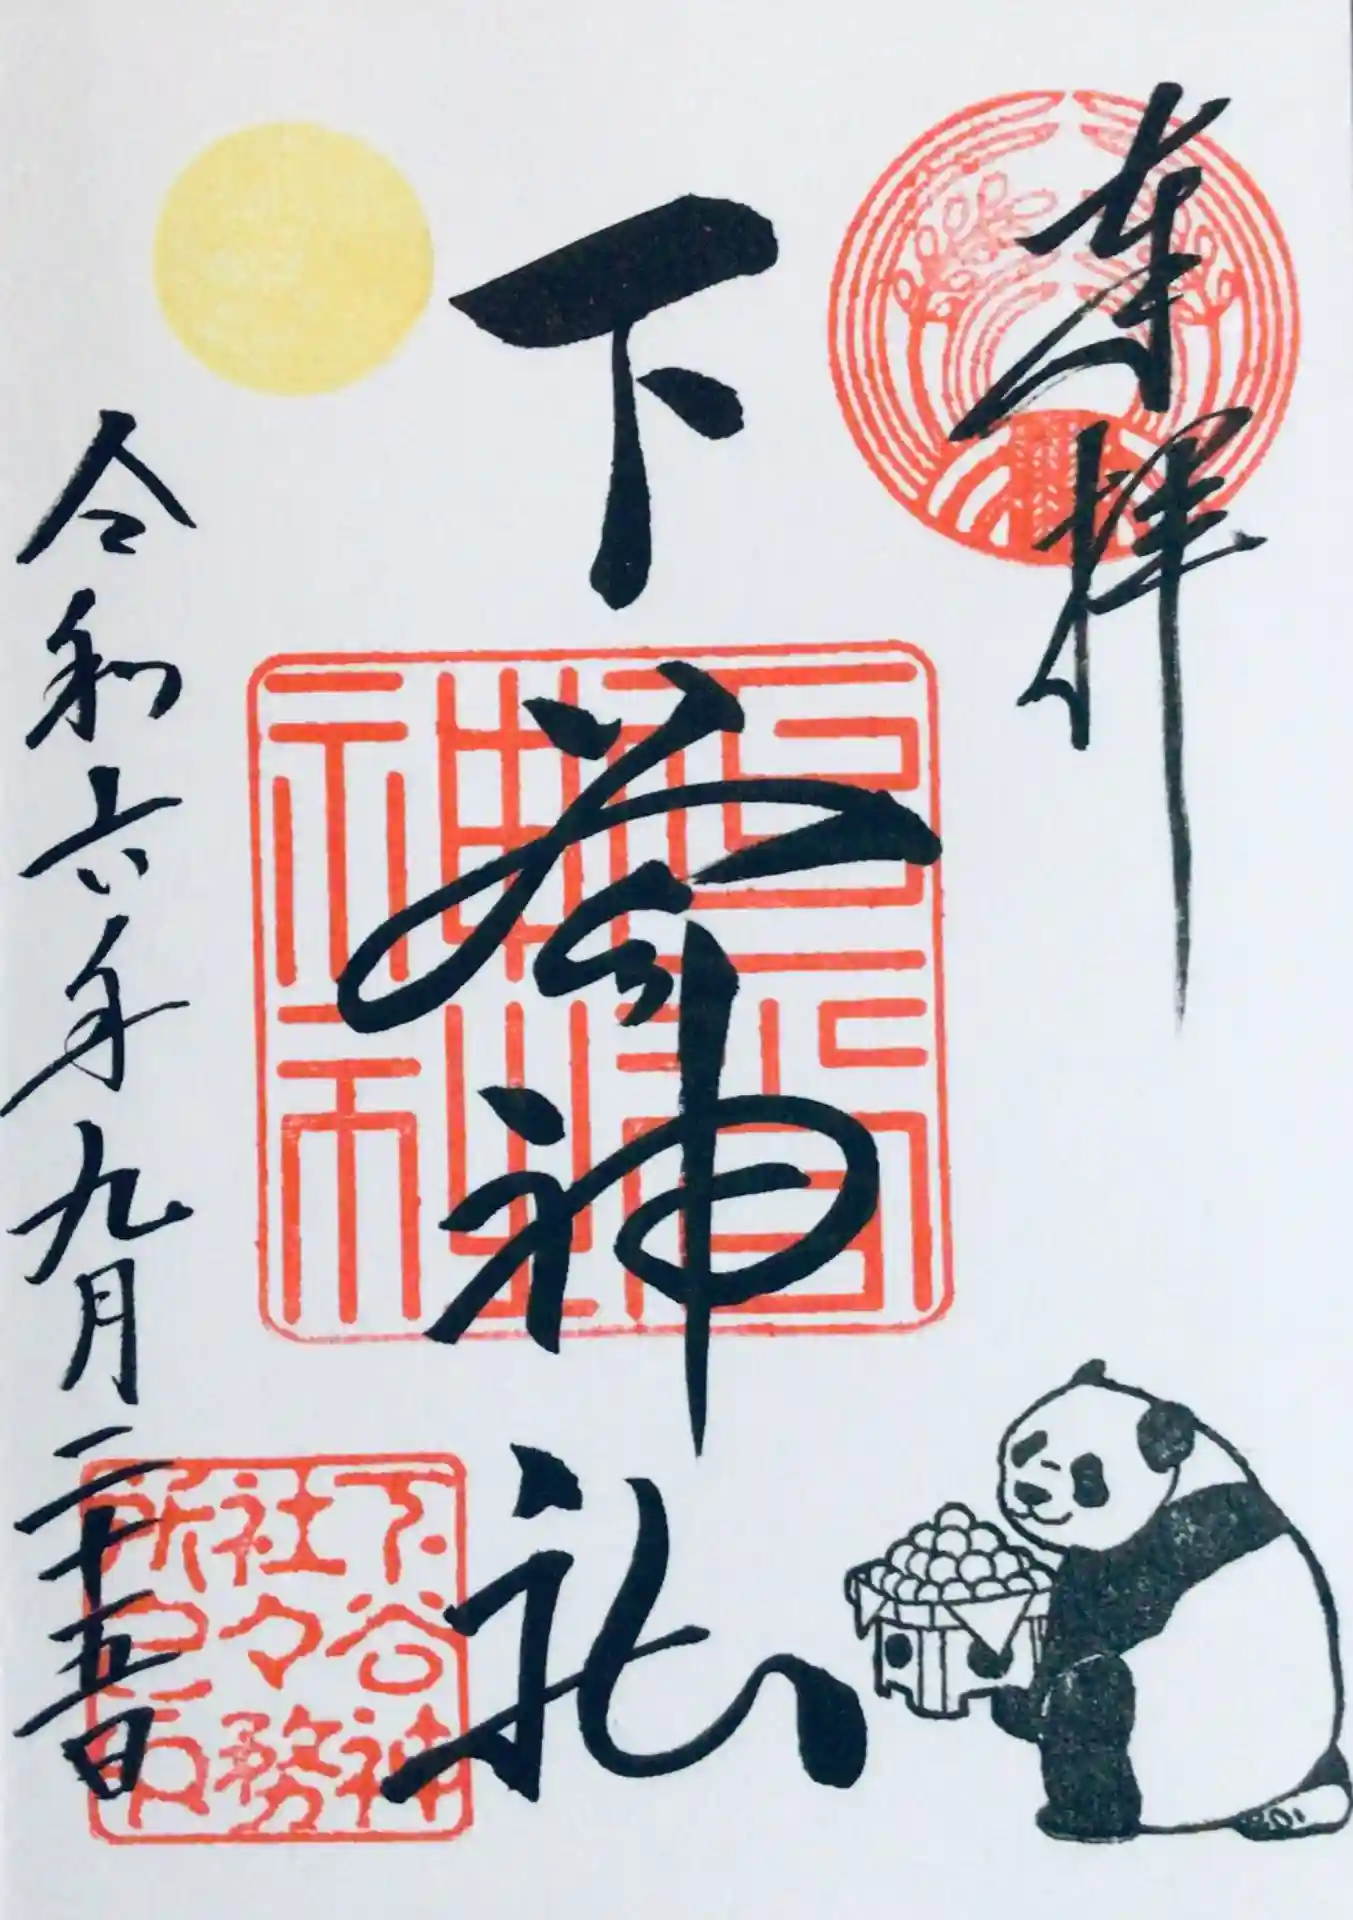 奉拝
下谷神社
令和六年九月二十五日
下谷神
社々務
所之印